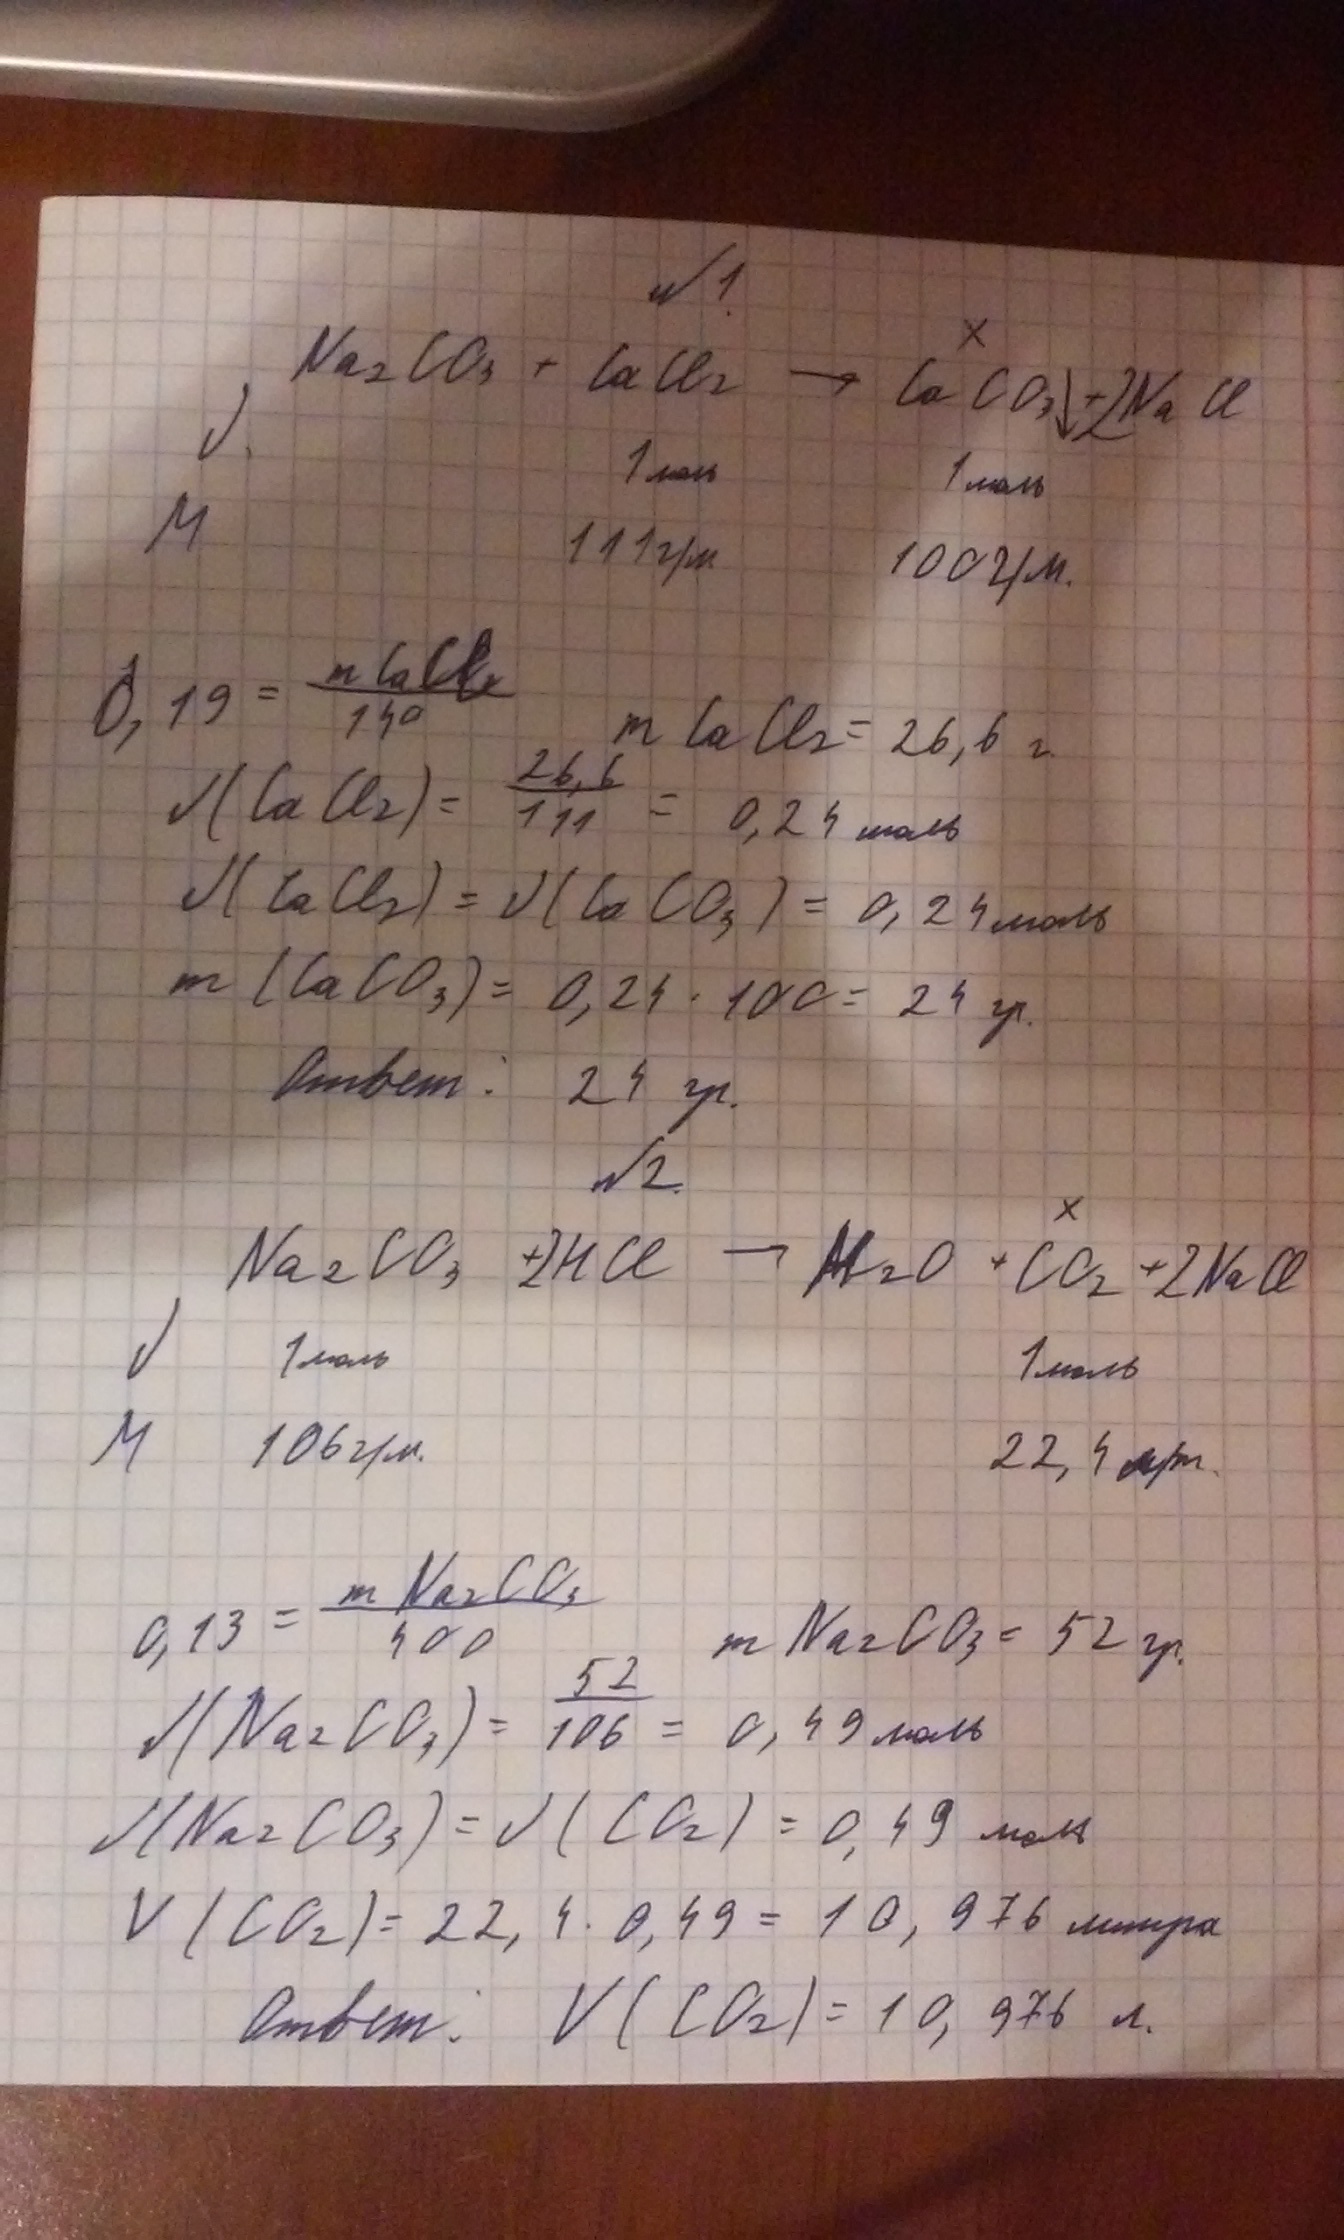 №1.
x
Na2CO3 + CaCl2 → CaCO3↓ + 2NaCl
ν. 1моль 1моль
M 111г/м 100г/м.
0,19 = m CaCl2 / 140 m CaCl2 = 26,6 г.
ν(CaCl2) = 26,6 / 111 = 0,24 моль
ν(CaCl2) = ν(CaCO3) = 0,24 моль
m (CaCO3) = 0,24 · 100 = 24 гр.
Ответ: 24 гр.
№2.
x
Na2CO3 + 2HCl → H2O + CO2 + 2NaCl
ν 1моль 1моль
M 106г/м. 22,4
0,13 = m Na2CO3 / 400 m Na2CO3 = 52 гр.
ν(Na2CO3) = 52 / 106 = 0,49 моль
ν(Na2CO3) = ν(CO2) = 0,49 моль
V (CO2) = 22,4 · 0,49 = 10,976 литра
Ответ: V(CO2) = 10,976 л.